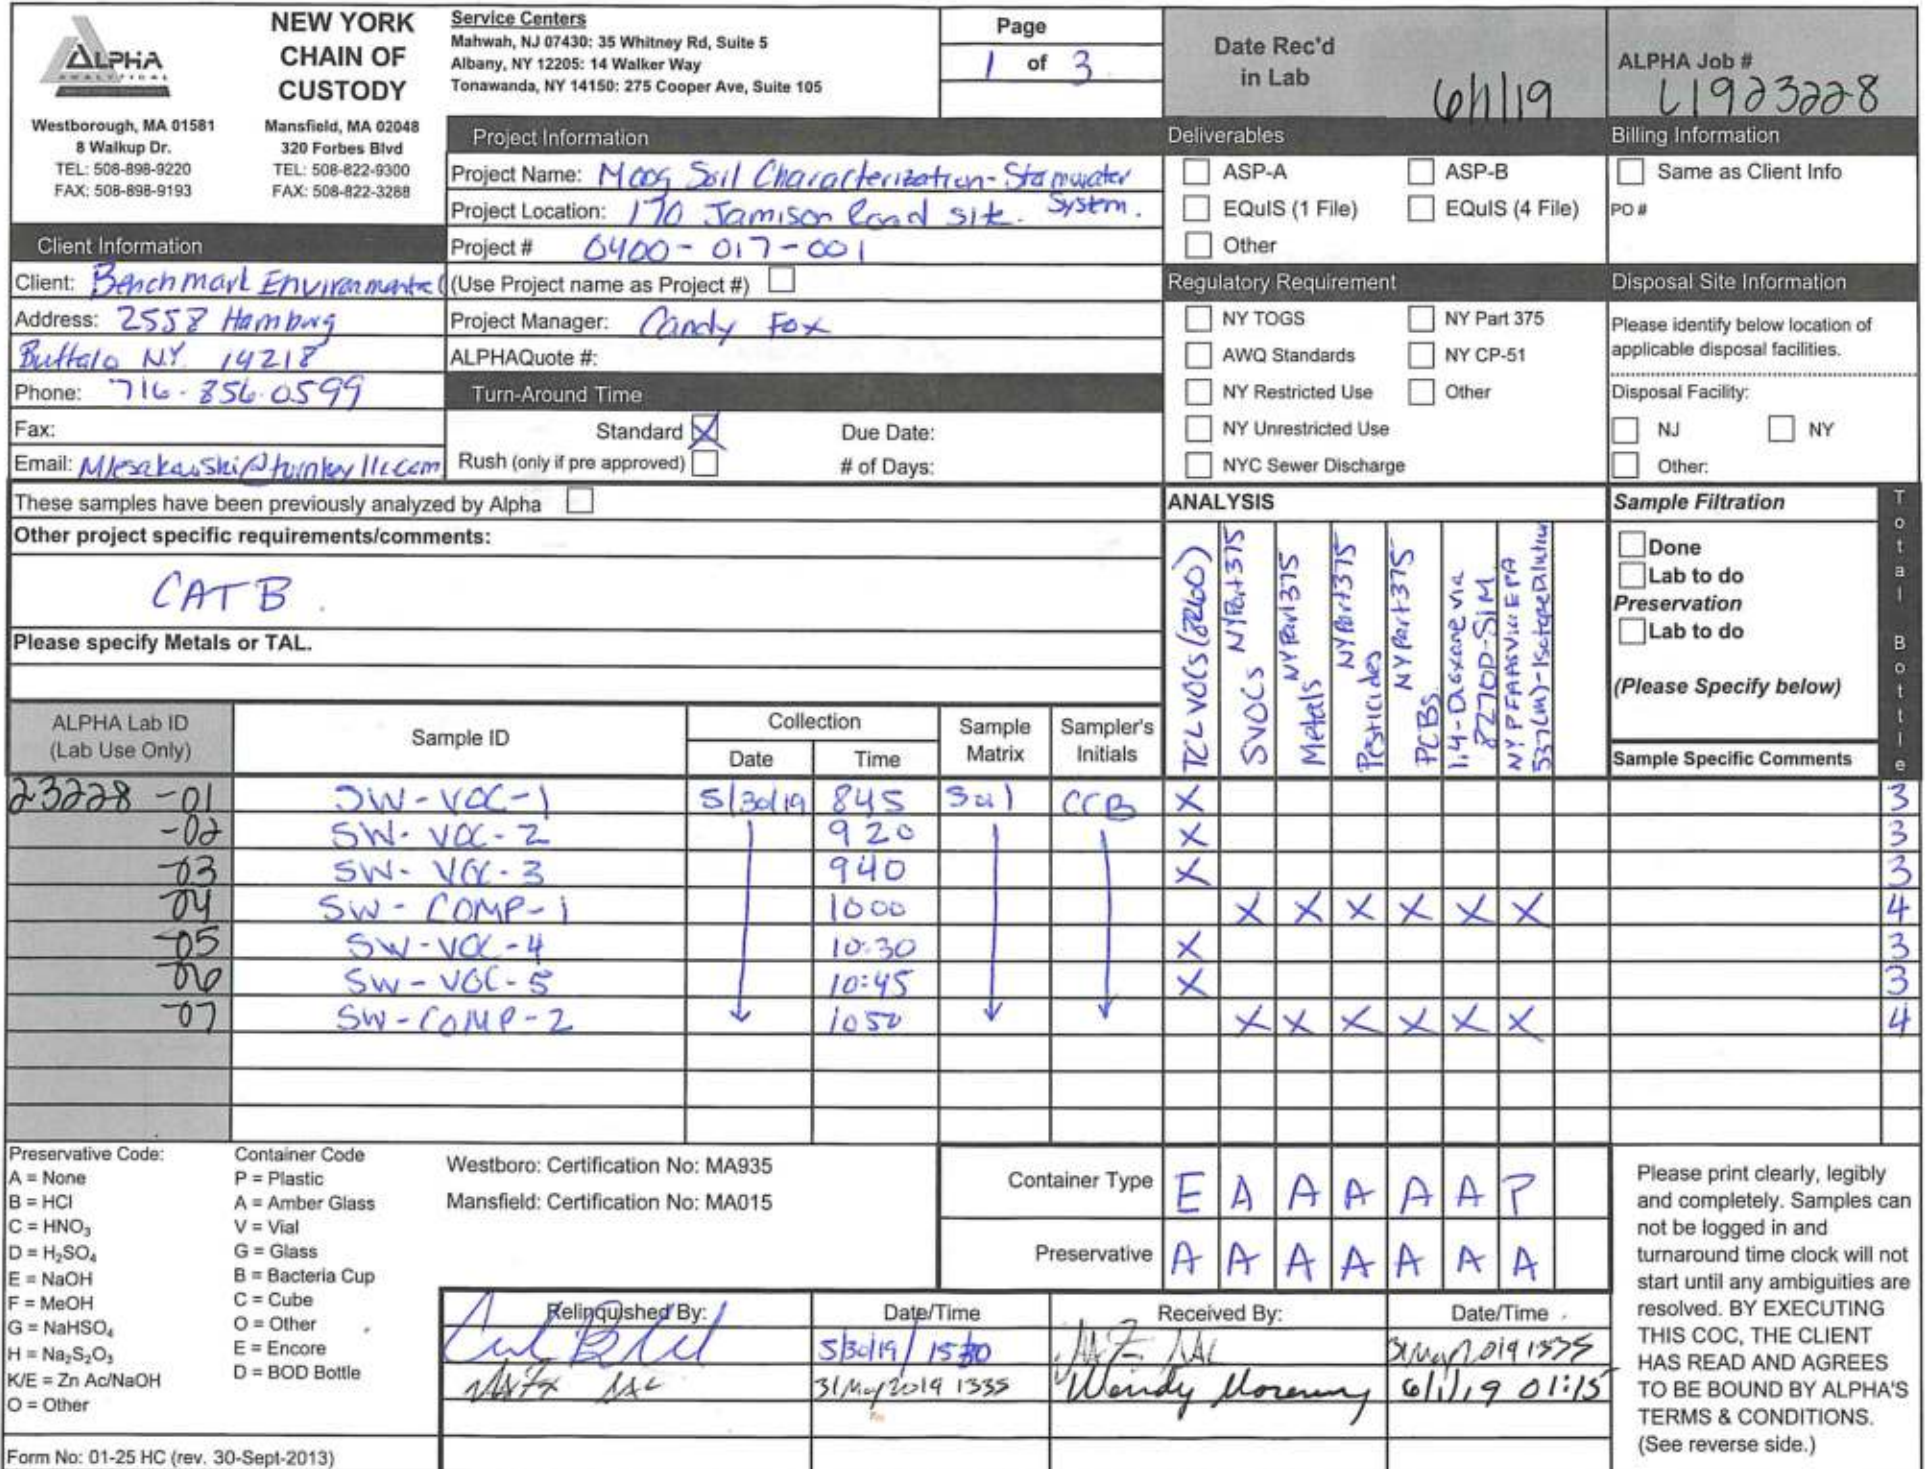 ALPHA
ANALYTICAL
Westborough, MA 01581
8 Walkup Dr.
TEL: 508-898-9220
FAX: 508-898-9193
NEW YORK
CHAIN OF
CUSTODY
Mansfield, MA 02048
320 Forbes Blvd
TEL: 508-822-9300
FAX: 508-822-3288
Service Centers
Mahwah, NJ 07430: 35 Whitney Rd, Suite 5
Albany, NY 12205: 14 Walker Way
Tonawanda, NY 14150: 275 Cooper Ave, Suite 105
Page
1 of 3
Date Rec'd
in Lab
6/1/19
ALPHA Job #
L1923228
Client Information
Client: Benchmark Environmental
Address: 2558 Hamburg
Buffalo NY. 14218
Phone: 716-856-0599
Fax:
Email: Mlesakowski@turnkeyllc.com
Project Information
Project Name: Moog Soil Characterization-Stormwater
System.
Project Location: 170 Jamison Road site.
Project # 0400-017-001
(Use Project name as Project #)
Project Manager: Candy Fox
ALPHAQuote #:
Turn-Around Time
Standard X Due Date:
Rush (only if pre approved) # of Days:
Deliverables
ASP-A ASP-B
EQuIS (1 File) EQuIS (4 File)
Other
Regulatory Requirement
NY TOGS NY Part 375
AWQ Standards NY CP-51
NY Restricted Use Other
NY Unrestricted Use
NYC Sewer Discharge
Billing Information
Same as Client Info
PO #
Disposal Site Information
Please identify below location of
applicable disposal facilities.
Disposal Facility:
NJ NY
Other:
These samples have been previously analyzed by Alpha
Other project specific requirements/comments:
CAT B
Please specify Metals or TAL.
ANALYSIS
TCL VOCs (8260)
SVOCs NYPart375
Metals NYPart375
Pesticides NYPart375
PCBs NYPart375
1,4-Dioxane via
8270D-SIM
NY PFAAs via EPA
537(m)-Isotope Dilution
Sample Filtration
Done
Lab to do
Preservation
Lab to do
(Please Specify below)
Sample Specific Comments
Total Bottle
ALPHA Lab ID
(Lab Use Only)
Sample ID
Collection
Date Time
Sample
Matrix
Sampler's
Initials
23228 -01 SW-VOC-1 5/30/19 845 Soil CCB X 3
-02 SW-VOC-2 920 X 3
-03 SW-VOC-3 940 X 3
-04 SW-COMP-1 1000 X X X X X X 4
-05 SW-VOC-4 10:30 X 3
-06 SW-VOC-5 10:45 X 3
-07 SW-COMP-2 1050 X X X X X X 4
Preservative Code:
A = None
B = HCl
C = HNO₃
D = H₂SO₄
E = NaOH
F = MeOH
G = NaHSO₄
H = Na₂S₂O₃
K/E = Zn Ac/NaOH
O = Other
Container Code
P = Plastic
A = Amber Glass
V = Vial
G = Glass
B = Bacteria Cup
C = Cube
O = Other
E = Encore
D = BOD Bottle
Westboro: Certification No: MA935
Mansfield: Certification No: MA015
Container Type E A A A A A P
Preservative A A A A A A A
Relinquished By: Date/Time Received By: Date/Time
5/30/19 / 1530 31May2019 1335
31May2019 1335 Wendy 6/1/19 01:15
Please print clearly, legibly
and completely. Samples can
not be logged in and
turnaround time clock will not
start until any ambiguities are
resolved. BY EXECUTING
THIS COC, THE CLIENT
HAS READ AND AGREES
TO BE BOUND BY ALPHA'S
TERMS & CONDITIONS.
(See reverse side.)
Form No: 01-25 HC (rev. 30-Sept-2013)